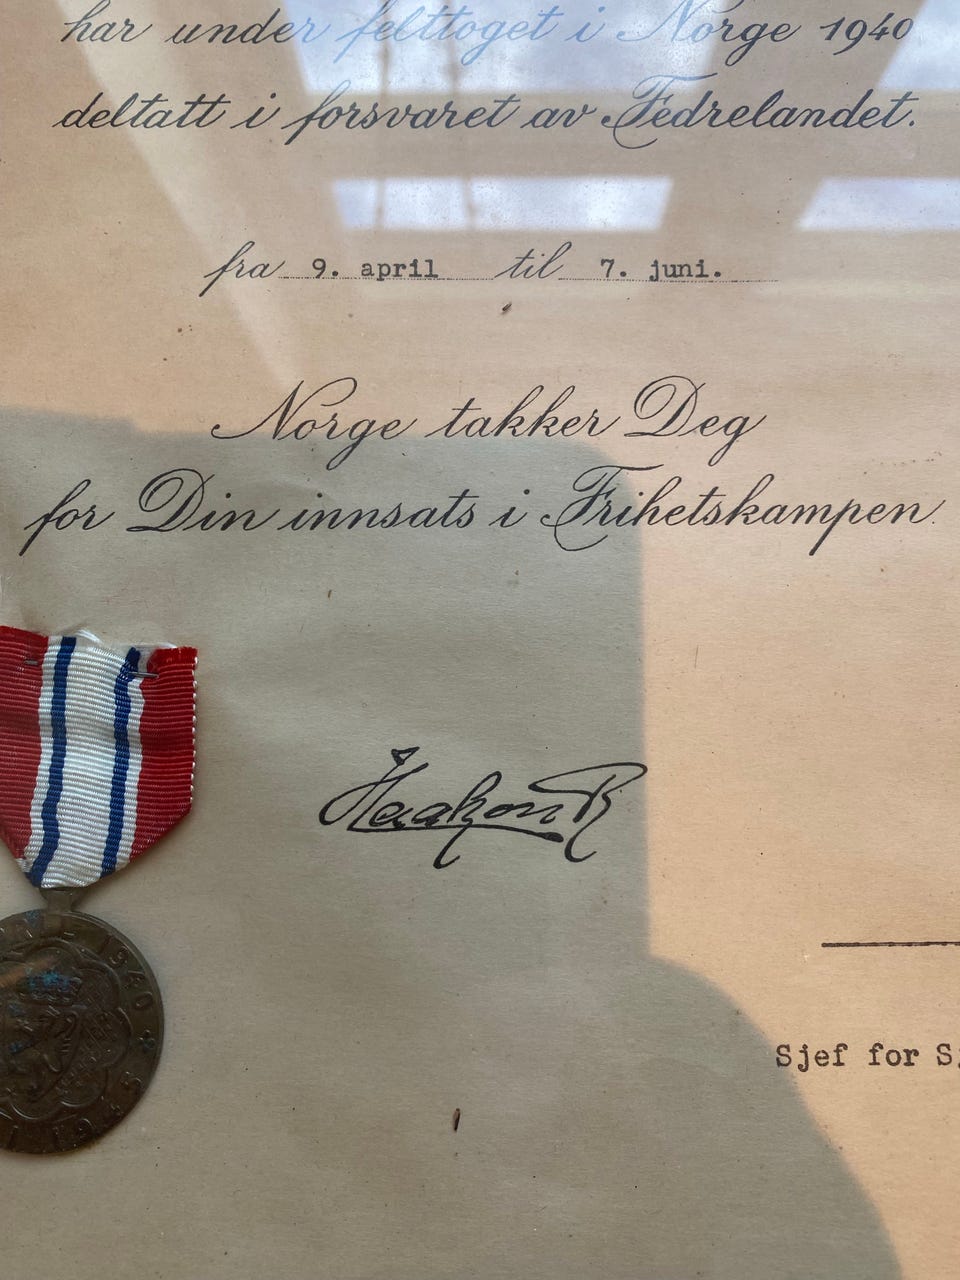 har under felttoget i Norge 1940
deltatt i forsvaret av Fedrelandet.
fra 9. april til 7. juni.
Norge takker Deg
for Din innsats i Frihetskampen.
Haakon R
1940
1945
Sjef for